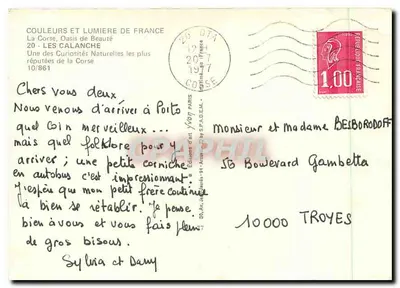 COULEURS ET LUMIERE DE FRANCE
La Corse, Oasis de Beauté
20 - LES CALANCHE
Une des Curiosités Naturelles les plus
réputées de la Corse
10/861
20 OTA
1977
CORSE
1,00
Chers vous deux
Nous venons d'arriver à Porto
quel coin merveilleux...
mais quel folklore pour y
arriver ; une petite corniche
en autobus c'est impressionnant.
J'espère que mon petit frère continue
à bien se rétablir. Je pense
bien à vous et vous fais plein
de gros bisous.
Sylvia et Dany
Monsieur et Madame BELBORODOFF
5B Boulevard Gambetta
10000 TROYES